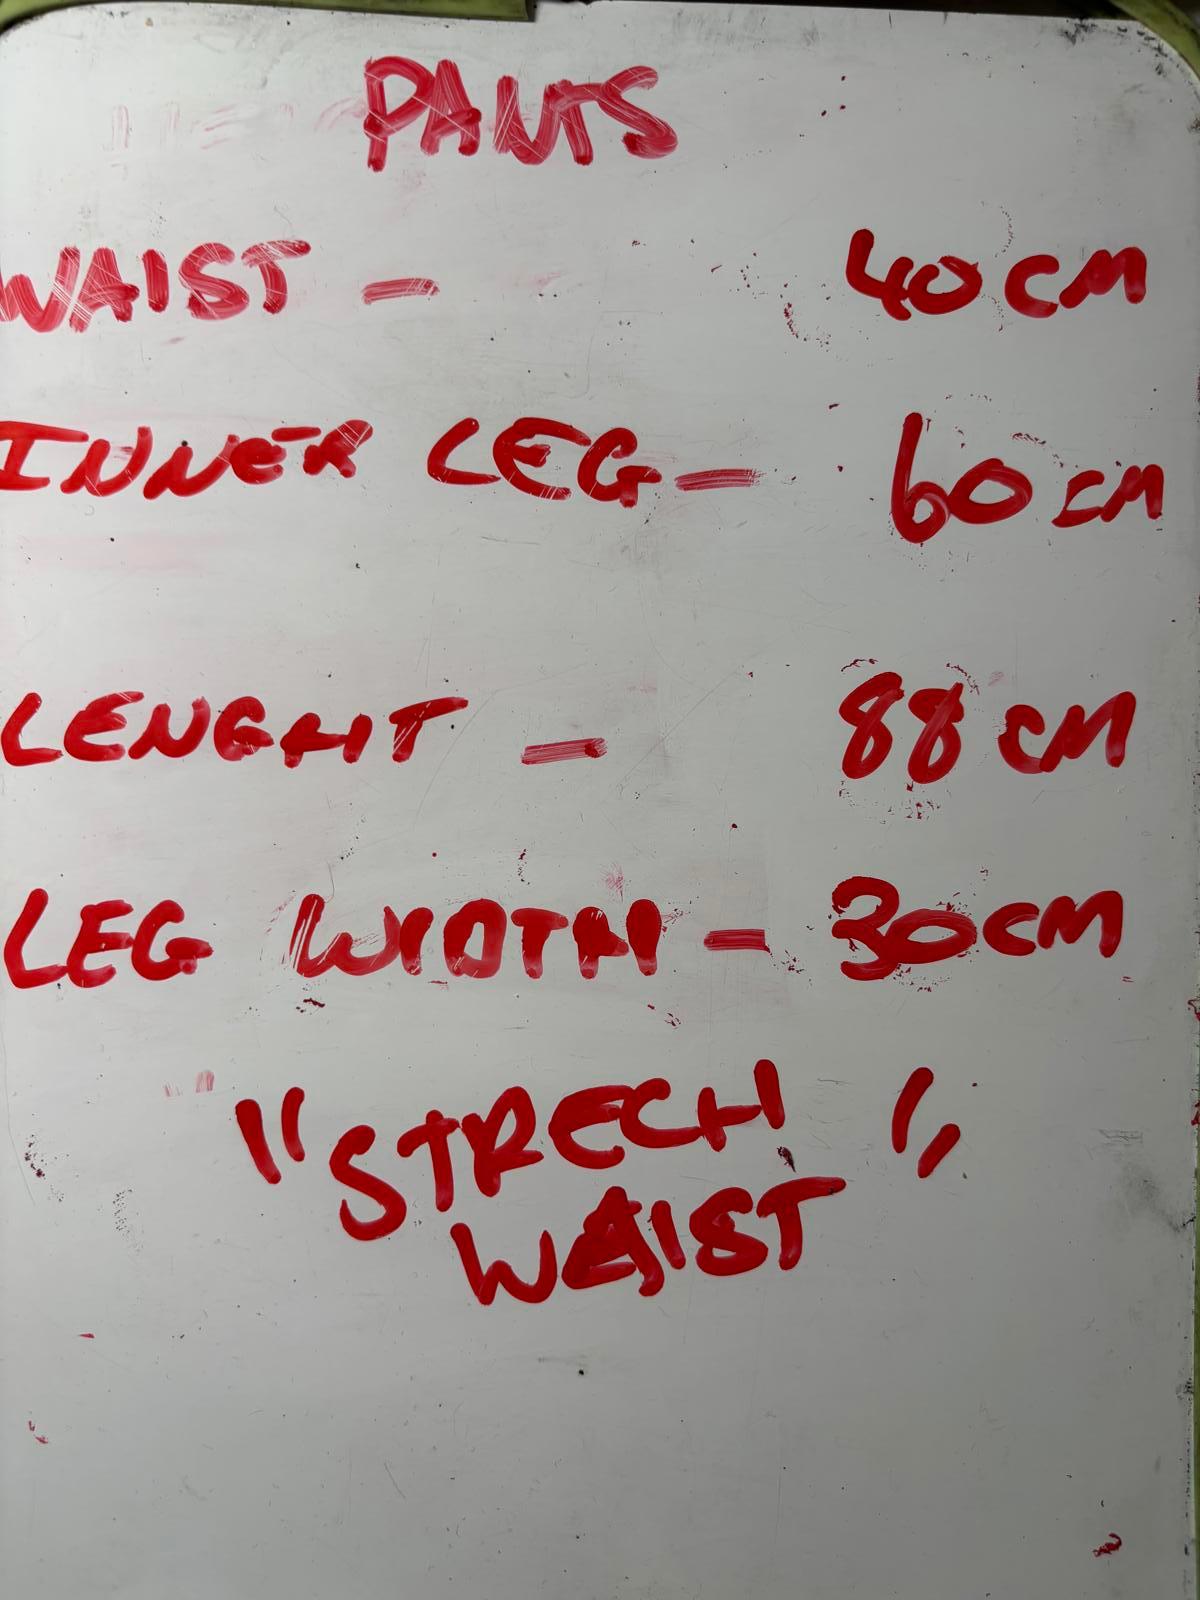 PANTS
WAIST - 40CM
INNER LEG - 60CM
LENGHT - 88CM
LEG WIDTH - 30CM
"STRECH "
WAIST